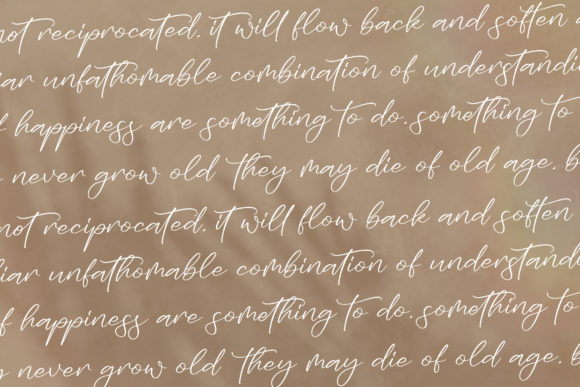 not reciprocated. it will flow back and soften
iar unfathomable combination of understandi
f happiness are something to do. something to
never grow old they may die of old age. b
not reciprocated. it will flow back and soften
iar unfathomable combination of understandi
f happiness are something to do. something to
y never grow old they may die of old age. b